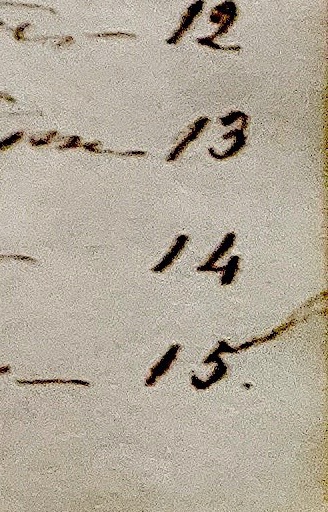 12
13
14
15.